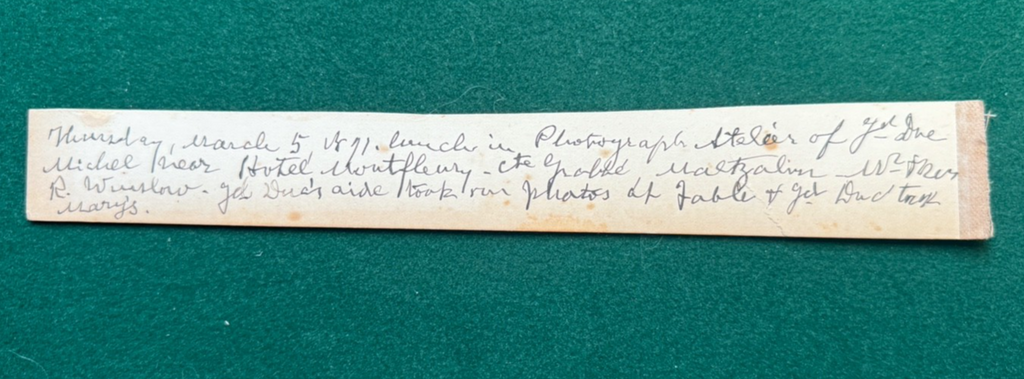 Thursday, March 5 1891. lunch in Photograph Atelier of gd Duc
Michel near Hotel Montfleury - cte Maltzahn - Mr & Mrs
R. Winslow - gd Duc's aide took our photos at Table & gd Duc took
Mary's.